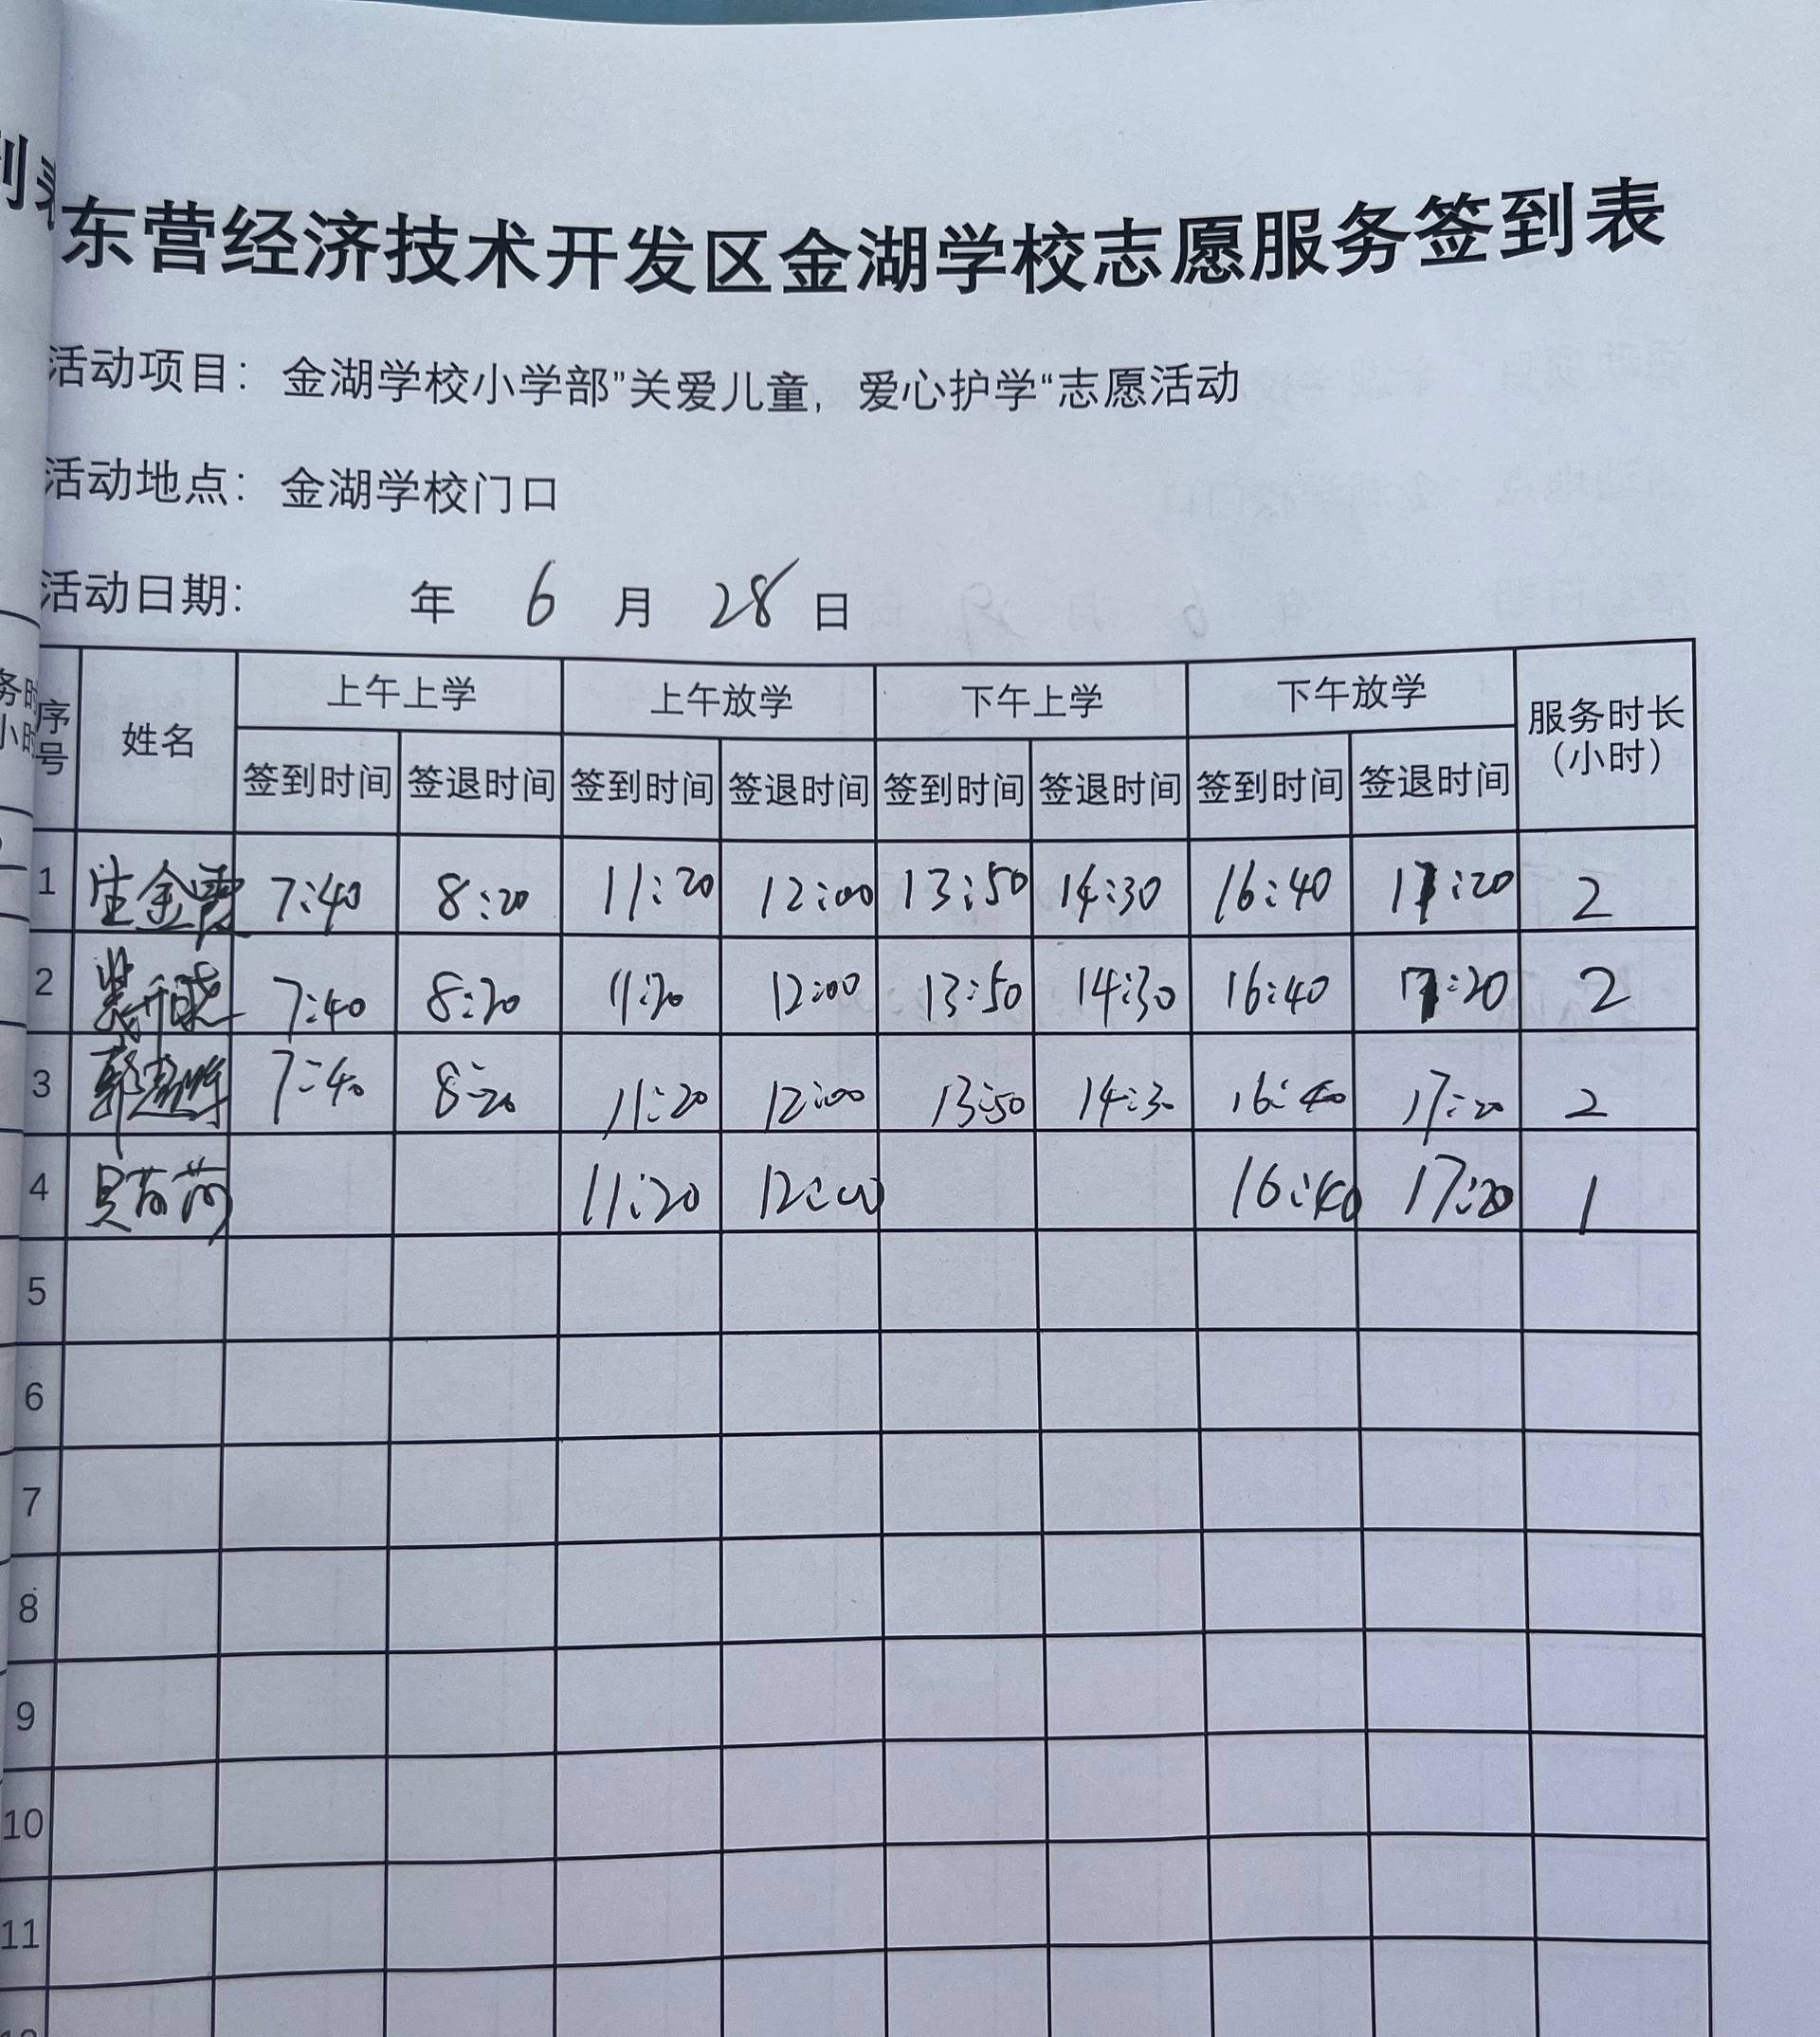 东营经济技术开发区金湖学校志愿服务签到表
活动项目：金湖学校小学部”关爱儿童，爱心护学“志愿活动
活动地点：金湖学校门口
活动日期： 年 6 月 28 日
序号 姓名 上午上学 上午放学 下午上学 下午放学 服务时长（小时）
签到时间 签退时间 签到时间 签退时间 签到时间 签退时间 签到时间 签退时间
1 生金霞 7:40 8:20 11:20 12:00 13:50 14:30 16:40 17:20 2
2 7:40 8:20 11:20 12:00 13:50 14:30 16:40 17:20 2
3 郭 7:40 8:20 11:20 12:00 13:50 14:30 16:40 17:20 2
4 11:20 12:00 16:40 17:20 1
5
6
7
8
9
10
11